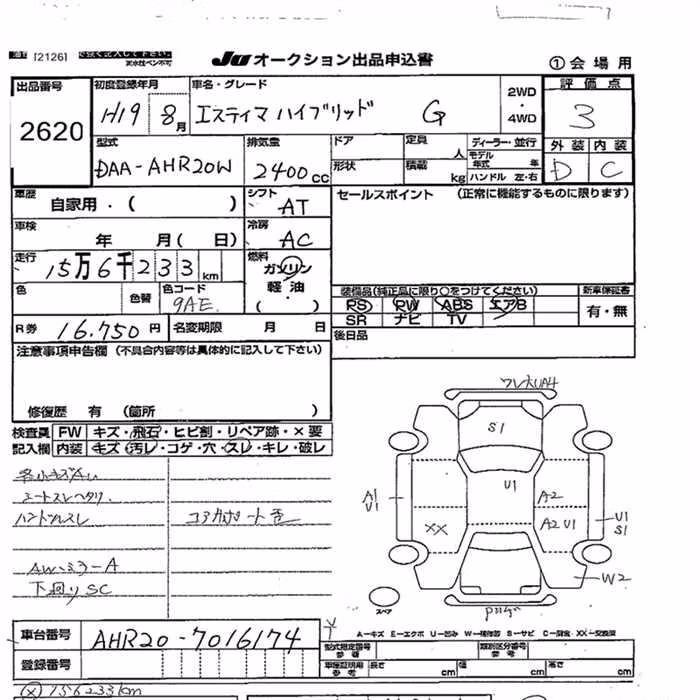 [2126]
JU オークション出品申込書
①会場用
出品番号
2620
初度登録年月
H19 8月
車名・グレード
エスティマ ハイブリッド G
2WD
・
4WD
評価点
3
型式
DAA-AHR20W
排気量
2400cc
ドア
形状
定員
人
積載
kg
ディーラー・並行
モデル年式 年
ハンドル 左・右
外装 内装
D C
車歴
自家用・( )
シフト
AT
セールスポイント (正常に機能するものに限ります)
車検
年 月( 日)
冷房
AC
走行
15万6千233km
燃料
ガソリン
軽油
( )
色
色替
色コード
9AE
装備品(純正品に限り○をつけてください)
新車保証書
PS PW ABS エアB
有・無
SR ナビ TV
R券 16.750円
名変期限 月 日
後日品
注意事項申告欄 (不具合内容等は具体的に記入して下さい)
修復歴 有 (箇所 )
検査員 FW キズ・飛石・ヒビ割・リペア跡・×要
記入欄 内装 キズ・汚レ・コゲ・穴・スレ・キレ・破レ
シートスレヘタリ
ハンドルスレ
AWミラーA
下廻りSC
S1
U1
A1
U1
A2
A2 U1
XX
U1
S1
W2
スペア
車台番号
AHR20-7016174
A-キズ E-エクボ U-凹み W-補修跡 S-サビ C-腐食 XX-交換済
登録番号
型式指定番号
参考
類別区分番号
参考
車庫証明用
参考
長さ cm
幅 cm
高さ cm
(×)156233km